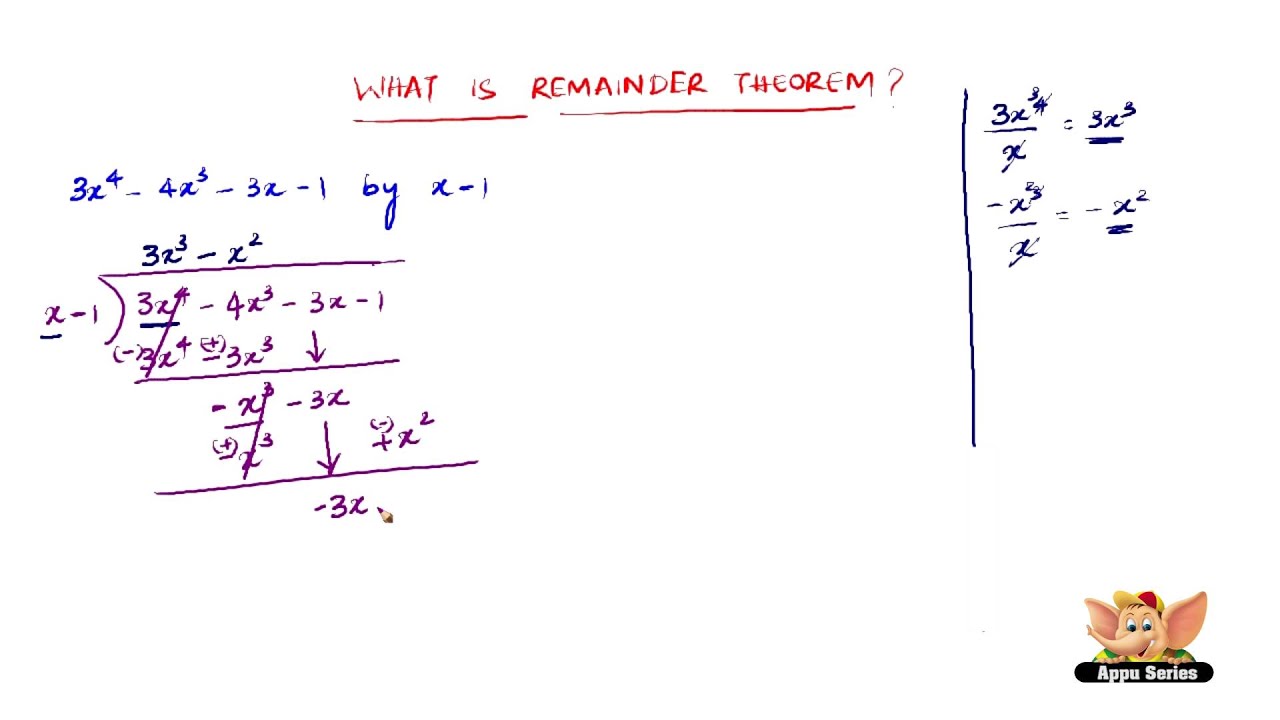 WHAT IS REMAINDER THEOREM?
3x⁴ - 4x³ - 3x - 1 by x - 1
3x³ - x²
x - 1 ) 3x⁴ - 4x³ - 3x - 1
(-) 3x⁴ (+) - 3x³ ↓
- x³ - 3x
(+) - x³ ↓ (-) + x²
- 3x
3x⁴ / x = 3x³
3
- x³ / x = - x²
2
Appu Series